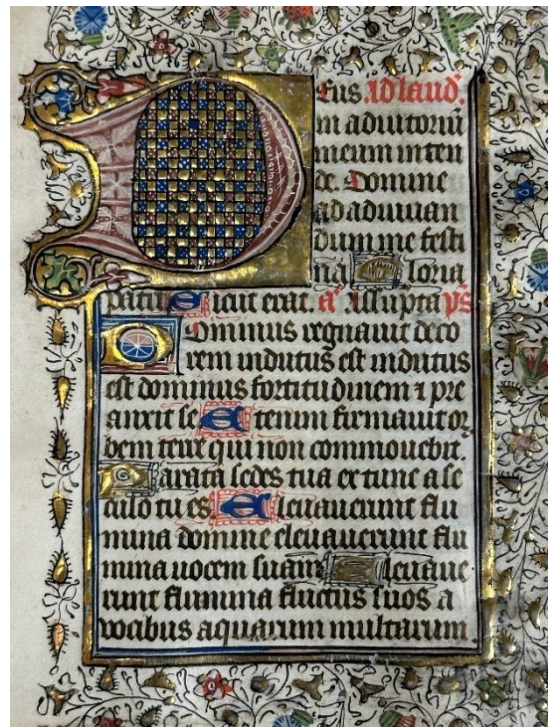 Deus. Ad laud̄.
in adiutoriū
meum inten
de. Domine
ad adiuuan
dum me festi
na Gloria
patri Sicut erat. a͞ Assupta ps̄
Dominus regnauit deco
rem indutus est indutus
est dominus fortitudinem ⁊ pre
cinxit se Etenim firmauit or
bem terre qui non commouebit᷑
Parata sedes tua ex tunc a se
culo tu es Eleuauerunt flu
mina domine eleuauerunt flu
mina uocem suam Eleuaue
runt flumina fluctus suos a
vocibus aquarum multarum.